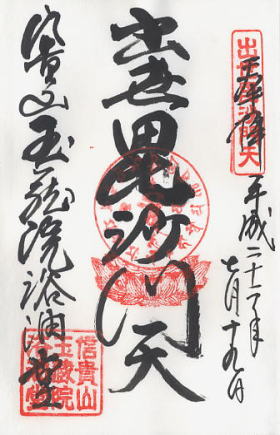 出世毘沙門天
奉拝
平成二十二年
七月十九日
出世毘沙門天
信貴山玉蔵院浴油堂
信貴山
玉蔵院